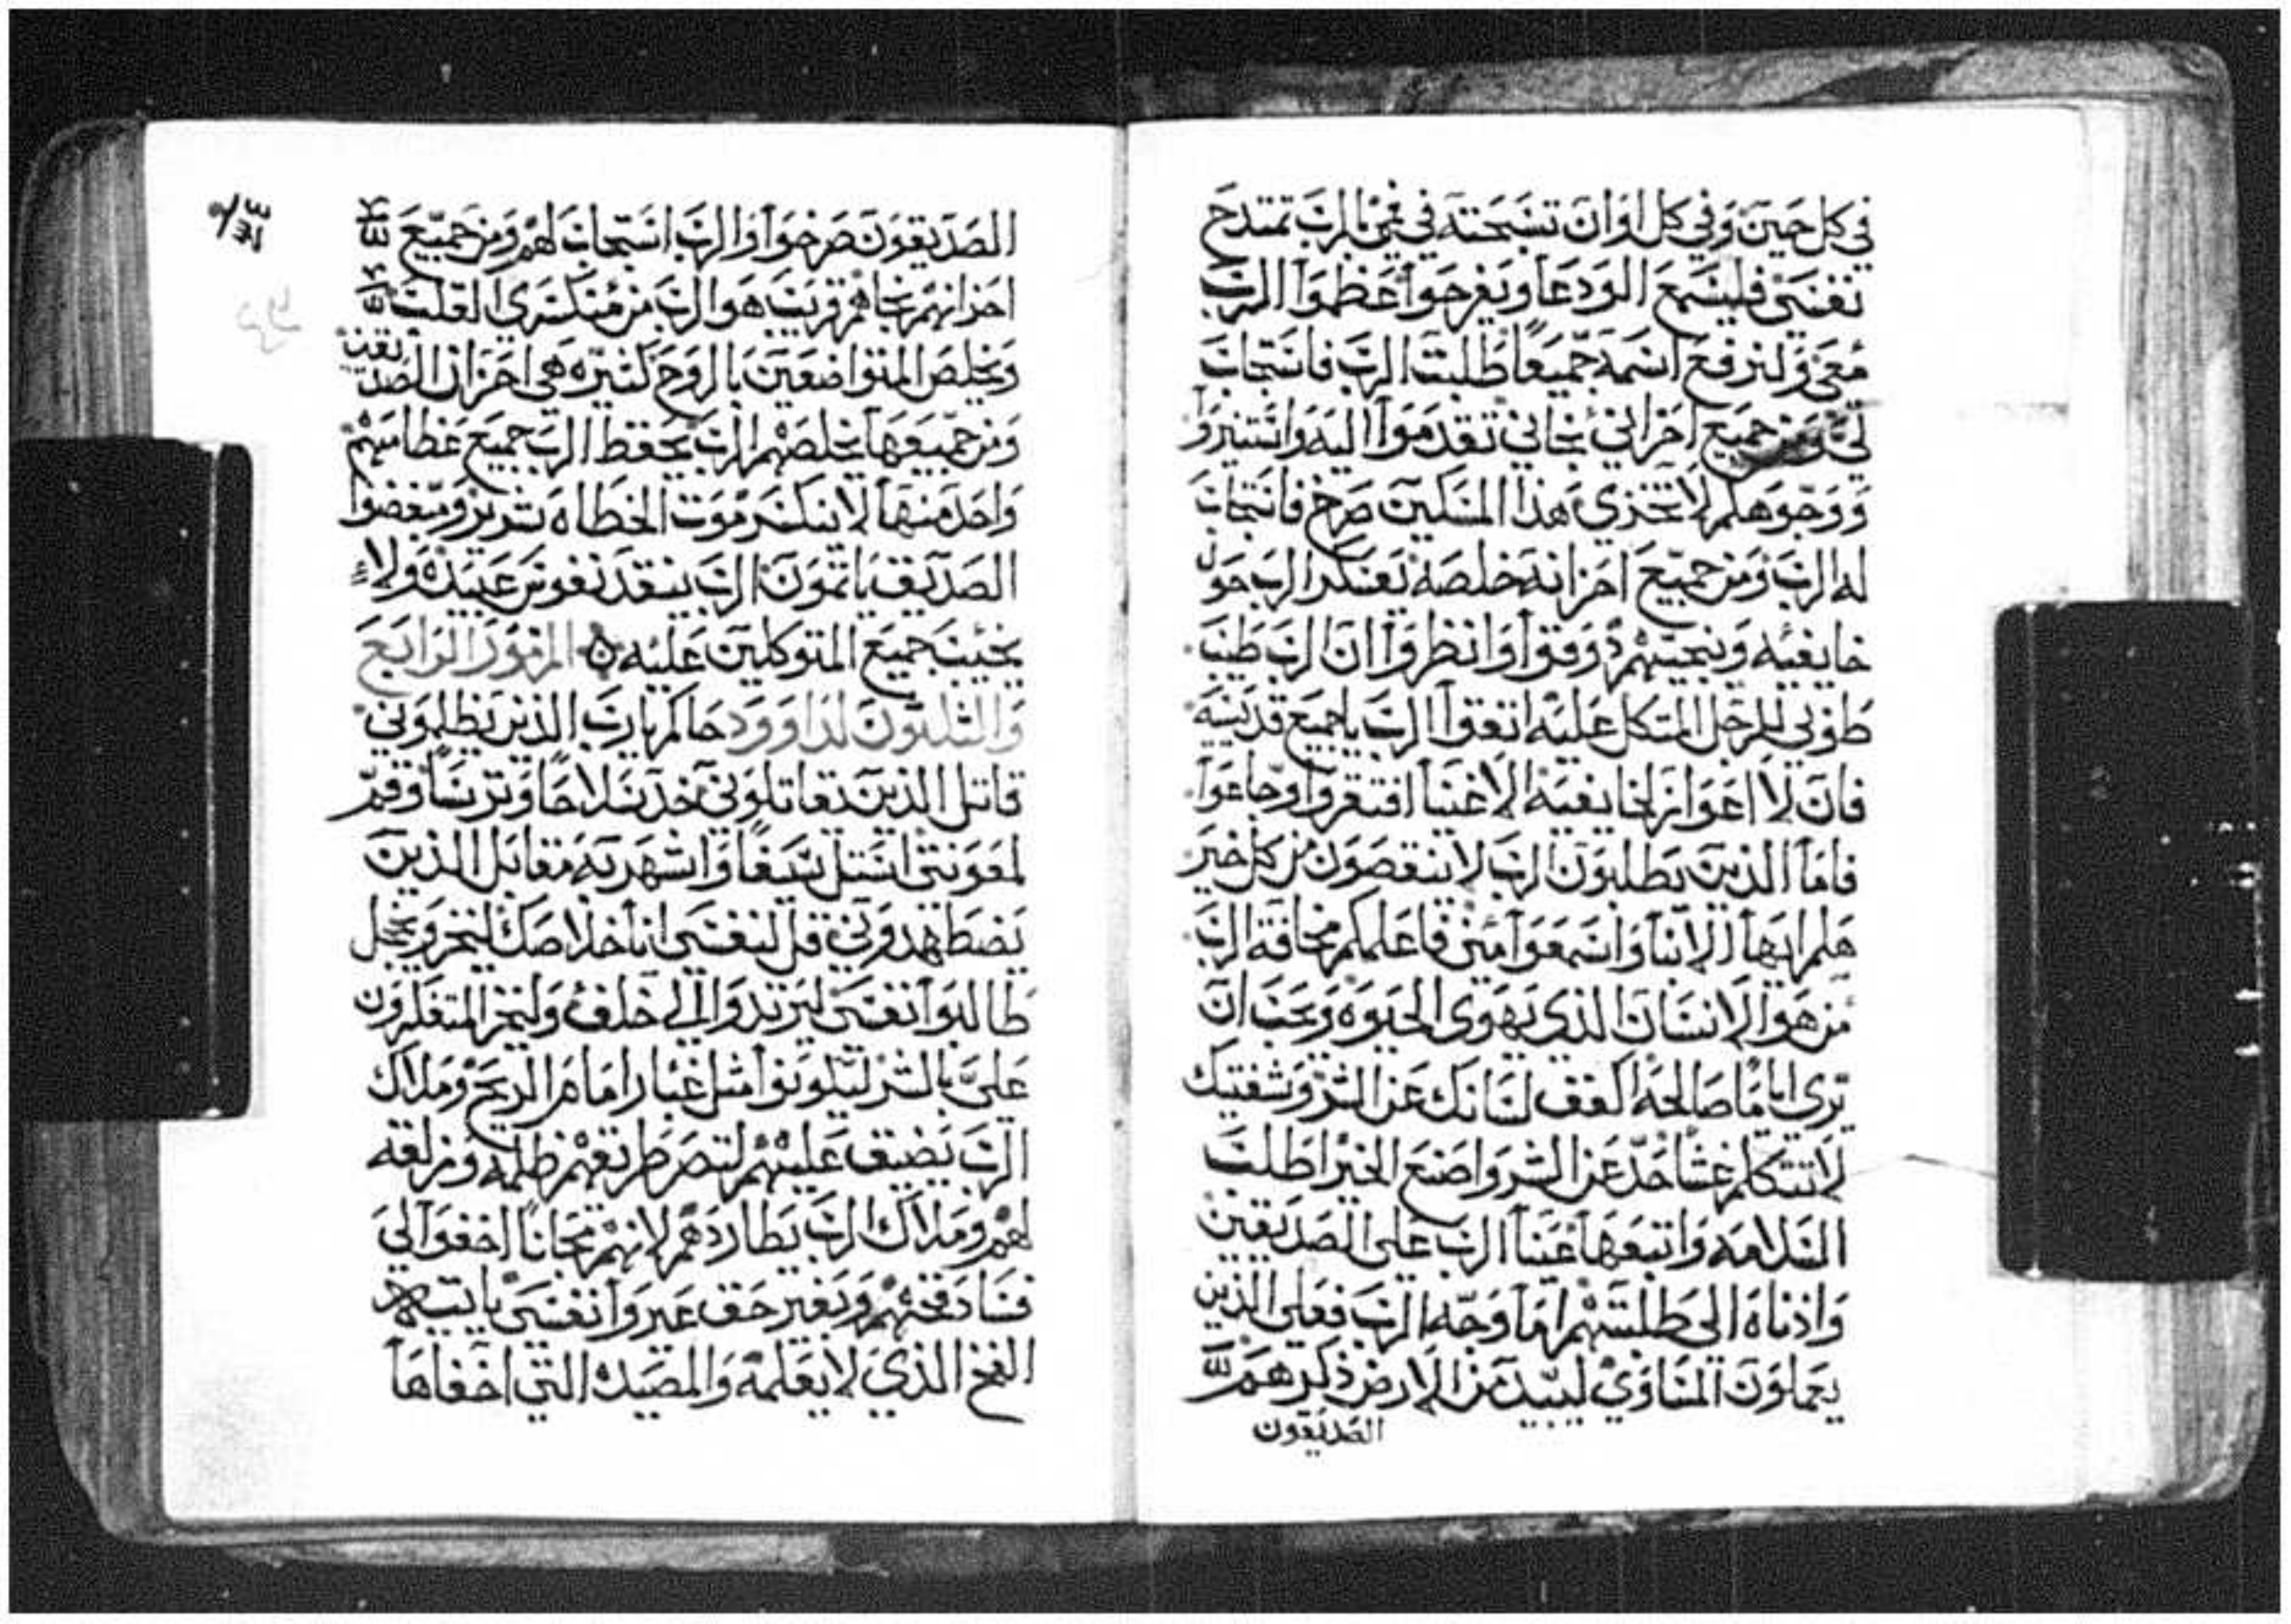 في كل حين وفي كل اوان تسبحته في فمي بالرب تمتدح
نفسي فليسمع الودعا ويفرحوا عظموا الرب
معي ولنرفع اسمه جميعًا طلبت الرب فاستجاب
لي ومن جميع احزاني نجاني تقدموا اليه واستنيروا
ووجوهكم لا تخزي هذا المسكين صرخ فاستجاب
له الرب ومن جميع احزانه خلصه تعسكر الرب حول
خايفيه وينجيهم ذوقوا وانظروا ان الرب طيب
طوبي للرجل المتكل عليه اتقوا الرب ياجميع قديسيه
فان لا اعواز لخايفيه الاغنيا افتقروا وجاعوا
فاما الذين يطلبون الرب لا ينقصون من كل خير
هلم ايها الابنا واسمعوا مني فاعلمكم مخافة الرب
من هو الانسان الذي يهوى الحيوه ويحب ان
يرى اياما صالحه اكفف لسانك عن الشر وشفتيك
لا تتكلم غشا حد عن الشر واصنع الخير اطلب
السلامه واتبعها عينا الرب على الصديقين
واذناه الى طلبتهم اما وجه الرب فعلى الذين
يعملون المساوي ليبيد من الارض ذكرهم
الصديقون
الصديقون صرخوا والرب استجاب لهم ومن جميع
احزانهم نجاهم قريب هو الرب من منكسري القلب
ويخلص المتواضعين بالروح كثيره هي احزان الصديقين
ومن جميعها يخلصهم الرب يحفظ الرب جميع عظامهم
واحد منها لا ينكسر موت الخطاه شرير ومبغضوا
الصديق ياثمون الرب ينقد نفوس عبيده ولا
يخيب جميع المتوكلين عليه المزمور الرابع
والثلثون لداوود حاكم يارب الذين يظلموني
قاتل الذين يقاتلوني خذ سلاحًا وترسًا وقم
لمعونتي استل سيفًا واشهر به مقابل الذين
يضطهدوني قل لنفسي انا خلاصك ليخز ويخجل
طالبوا نفسي ليرتدوا الي خلف وليخز المتفكرون
علي بالشر ليكونوا مثل غبار امام الريح وملاك
الرب يضيق عليهم لتصر طريقهم ظلمه ومزلقه
لهم وملاك الرب يطاردهم لانهم مجانًا اخفوا لي
فساد فخهم وبغير حق عيروا نفسي ياتيهم
الفخ الذي لا يعلمه والمصيده التي اخفاها